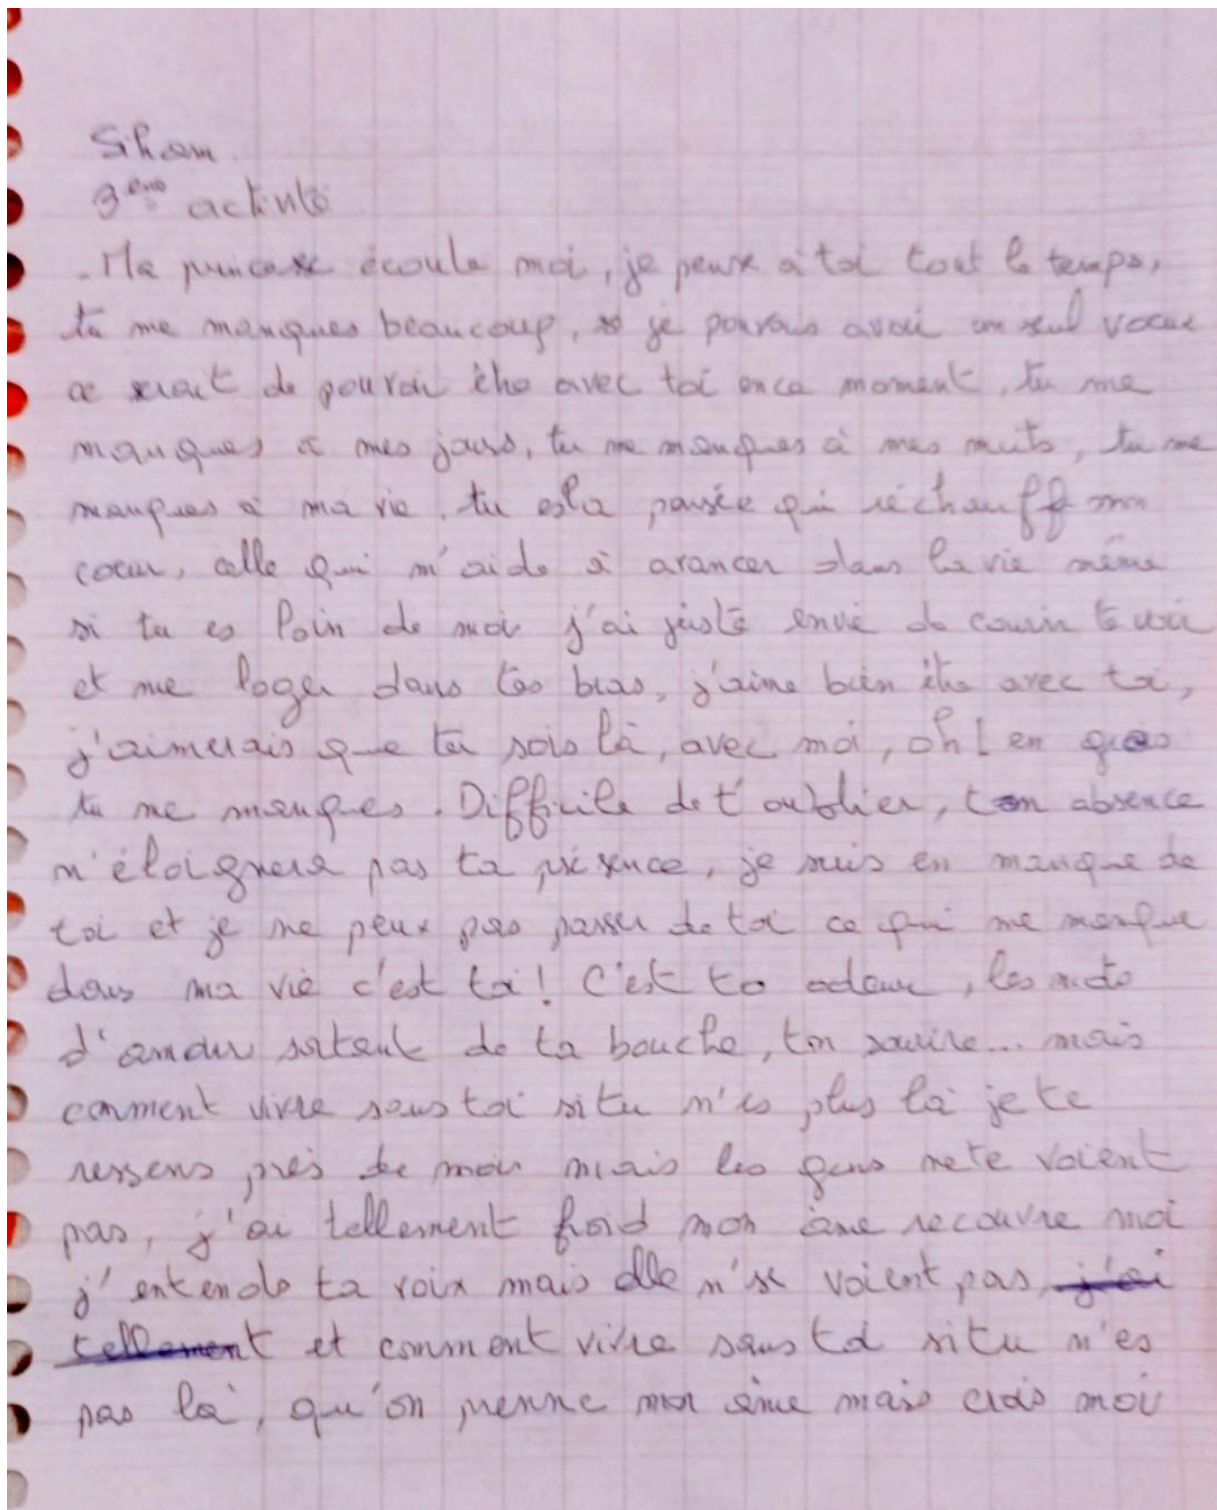 Siham
3ème activité
- Ma princesse écoute moi, je pense à toi tout le temps,
tu me manques beaucoup, si je pouvais avoir un seul voeux
ce serait de pouvoir être avec toi en ce moment, tu me
manques à mes jours, tu me manques à mes nuits, tu me
manques à ma vie, tu es la pensée qui réchauff mon
coeur, celle qui m'aide à avancer dans la vie même
si tu es loin de moi j'ai juste envie de courir te voir
et me loger dans tes bras, j'aime bien être avec toi,
j'aimerais que tu sois là, avec moi, oh! en gros
tu me manques. Difficile de t'oublier, ton absence
n'éloignera pas ta présence, je suis en manque de
toi et je ne peux pas passer de toi ce qui me manque
dans ma vie c'est toi! C'est to odeur, les mots
d'amour sortant de ta bouche, ton sourire... mais
comment vivre sans toi si tu n'es plus là je te
ressens près de moi mais les gens ne te voient
pas, j'ai tellement froid mon âme recouvre moi
j'entends ta voix mais elle n'se voient pas, j'ai
tellement et comment vivre sans toi si tu n'es
pas là, qu'on prenne mon âme mais crois moi